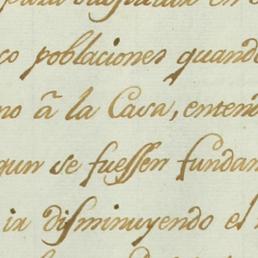 poblaciones quando
no â la Casa, enten
gun se fuessen fundan
ir disminuyendo el